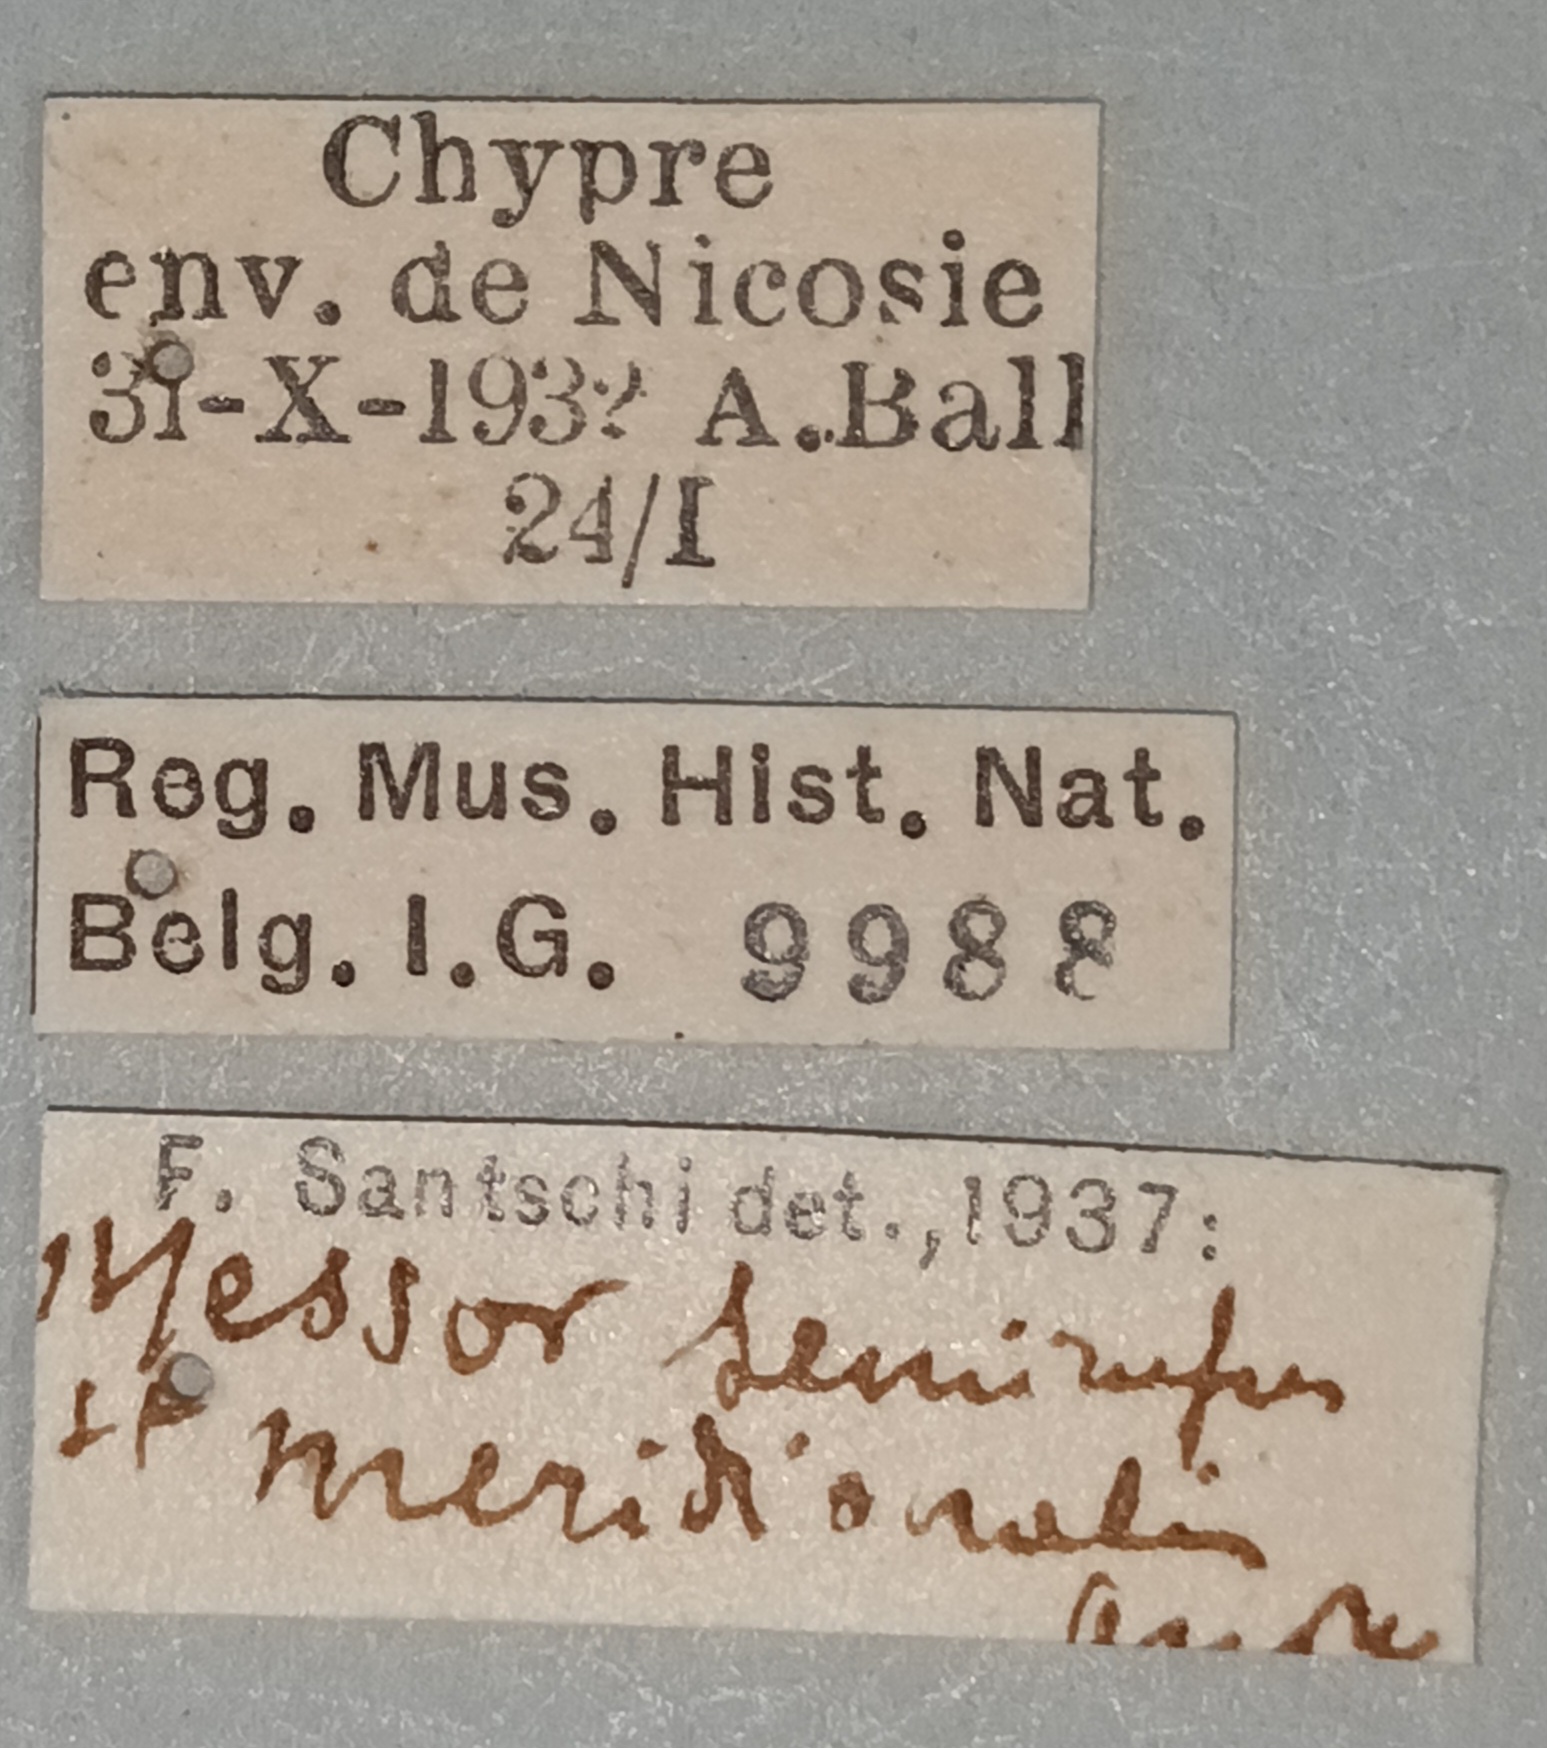 Chypre
env. de Nicosie
31-X-1932 A. Ball
24/I
Reg. Mus. Hist. Nat.
Belg. I.G. 9988
F. Santschi det., 1937:
Messor semirufus
sp meridionalis
André